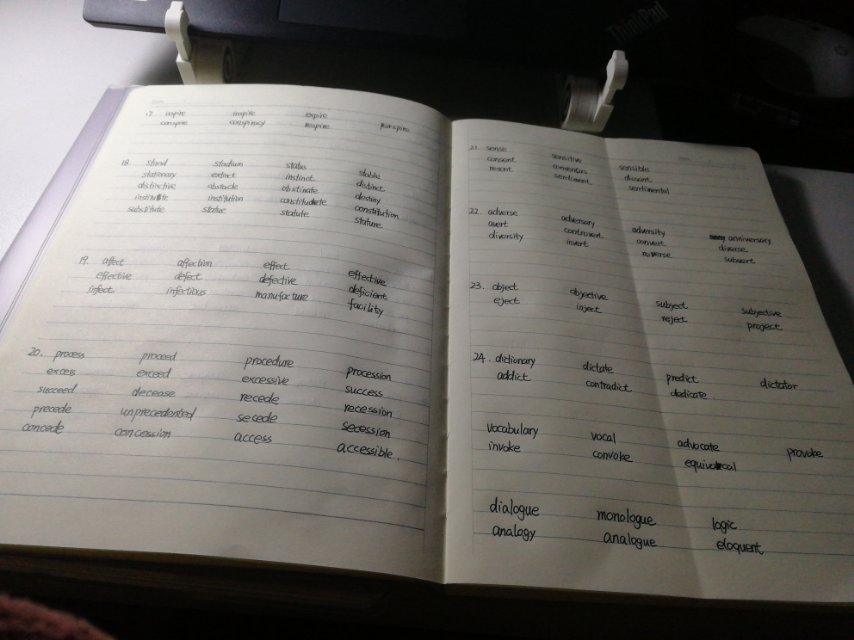 ThinkPad
17. aspire inspire expire
conspire conspiracy respire perspire
18. stand stadium stable
stationary extinct instinct distinct
distinctive obstacle obstinate destiny
institute institution constitute constitution
substitute statue statute stature
19. affect affection effect effective
effective defect defective deficient
infect infectious manufacture facility
20. process proceed procedure procession
excess exceed excessive success
succeed decease recede recession
precede unprecedented secede secession
concede concession access accessible.
21. sense sensitive sensible
consent consensus dissent
resent sentiment sentimental
22. adverse adversary adversity anniversary
avert controvert convert diverse
diversity invert reverse subvert
23. object objective subject subjective
eject inject reject project
24. dictionary dictate predict dictator
addict contradict dedicate
vocabulary vocal advocate provoke
invoke convoke equivocal
dialogue monologue logic
analogy analogue eloquent